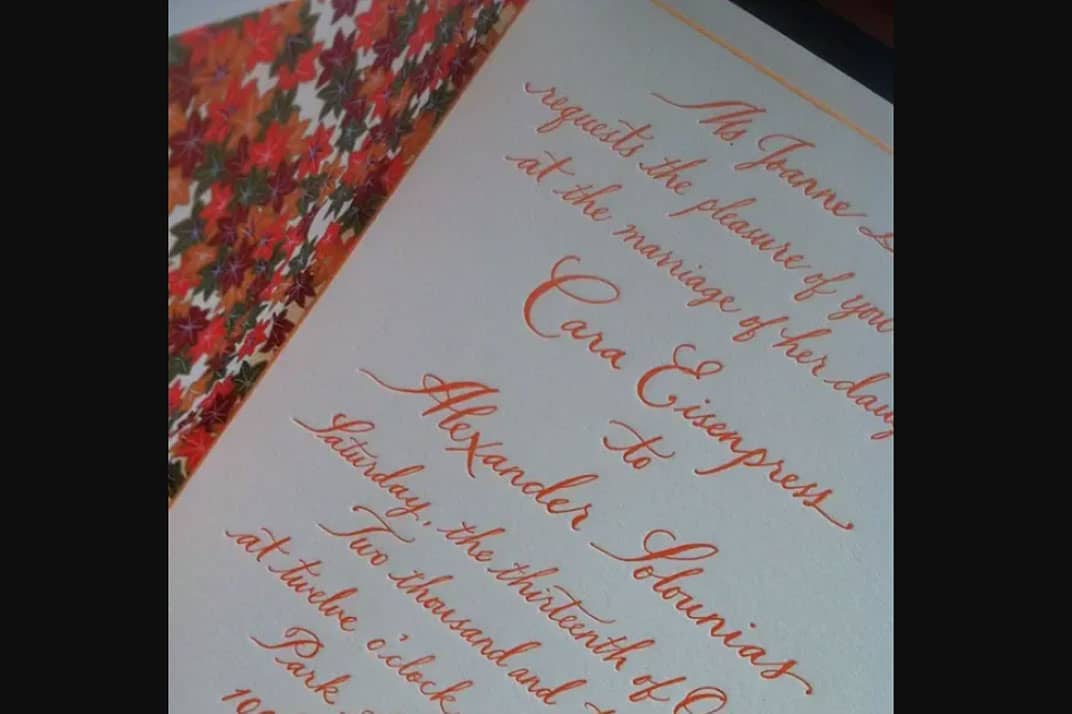 Ms. Joanne
requests the pleasure of
at the marriage of her
Cara Eisenpress
to
Alexander Solounias
Saturday, the thirteenth of
Two thousand and
at twelve o'clock
Park